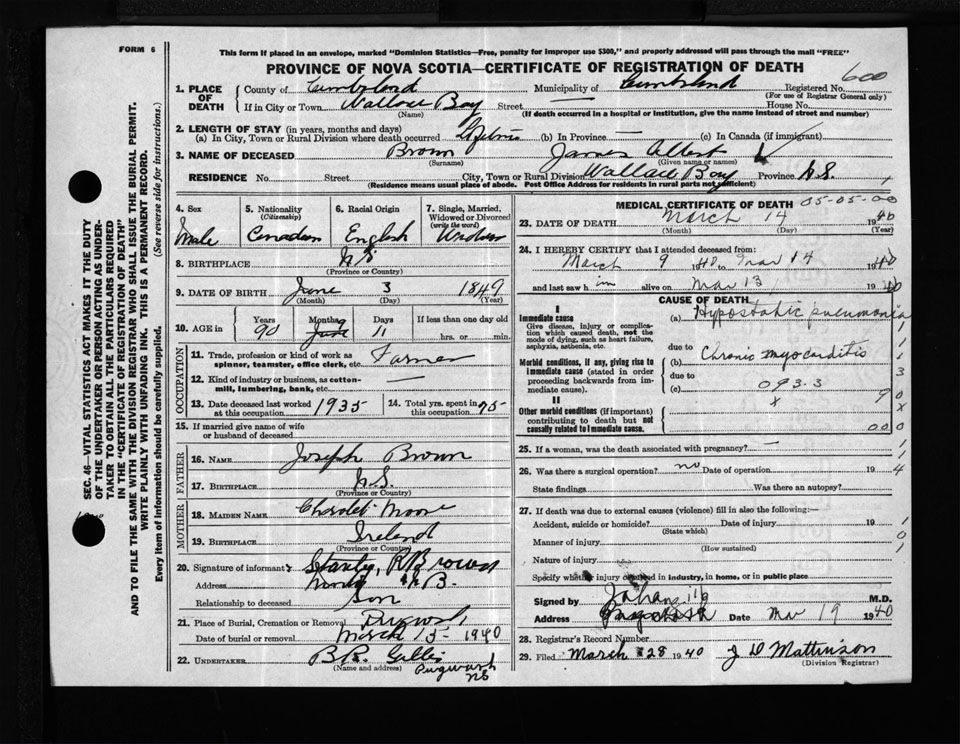 FORM 6
This form if placed in an envelope, marked "Dominion Statistics—Free, penalty for improper use $300," and properly addressed will pass through the mail "FREE"
PROVINCE OF NOVA SCOTIA—CERTIFICATE OF REGISTRATION OF DEATH
600
1. PLACE OF DEATH
County of Cumberland Municipality of Cumberland Registered No.
(For use of Registrar General only)
If in City or Town Wallace Bay Street — House No.
(Name) (If death occurred in a hospital or institution, give the name instead of street and number)
2. LENGTH OF STAY (in years, months and days)
(a) In City, Town or Rural Division where death occurred Lifetime (b) In Province — (c) In Canada (if immigrant)
3. NAME OF DECEASED Brown James Albert
(Surname) (Given name or names)
RESIDENCE No. Street City, Town or Rural Division Wallace Bay Province N.S.
(Residence means usual place of abode. Post Office Address for residents in rural parts not sufficient)
4. Sex
Male
5. Nationality
(Citizenship)
Canadian
6. Racial Origin
English
7. Single, Married, Widowed or Divorced
(write the word)
Widower
8. BIRTHPLACE N S
(Province or Country)
9. DATE OF BIRTH June 3 1849
(Month) (Day) (Year)
10. AGE in
Years
90
Months
9
Days
11
If less than one day old
hrs. or min.
OCCUPATION
11. Trade, profession or kind of work as spinner, teamster, office clerk, etc. Farmer
12. Kind of industry or business, as cotton-mill, lumbering, bank, etc. —
13. Date deceased last worked at this occupation 1935
14. Total yrs. spent in this occupation 75
15. If married give name of wife or husband of deceased
FATHER
16. NAME Joseph Brown
17. BIRTHPLACE N.S.
(Province or Country)
MOTHER
18. MAIDEN NAME Moore
19. BIRTHPLACE Ireland
(Province or Country)
20. Signature of informant Stanley R Brown
Address N B.
Relationship to deceased Son
21. Place of Burial, Cremation or Removal Pugwash
Date of burial or removal March 15 - 1940
22. UNDERTAKER Gillis
(Name and address) Pugwash
NS
MEDICAL CERTIFICATE OF DEATH 05-05-00
23. DATE OF DEATH March 14 1940
(Month) (Day) (Year)
24. I HEREBY CERTIFY that I attended deceased from:
March 9 1940 to Mar 14 1940
and last saw him alive on Mar 13 1940
CAUSE OF DEATH
I
Immediate cause
Give disease, injury or complication which caused death, not the mode of dying, such as heart failure, asphyxia, asthenia, etc.
(a) Hypostatic pneumonia
due to
Morbid conditions, if any, giving rise to immediate cause (stated in order proceeding backwards from immediate cause).
(b) Chronic myocarditis
due to
(c) 093.3
II
Other morbid conditions (if important) contributing to death but not causally related to immediate cause.
x
000
25. If a woman, was the death associated with pregnancy? —
26. Was there a surgical operation? no Date of operation 19
State findings Was there an autopsy?
27. If death was due to external causes (violence) fill in also the following:—
Accident, suicide or homicide? Date of injury 19
(State which)
Manner of injury
(How sustained)
Nature of injury
Specify whether injury occurred in industry, in home, or in public place
Signed by M.D.
Address Date Mar 19 1940
28. Registrar's Record Number
29. Filed March 28 1940 J D Mattinson
(Division Registrar)
SEC. 46—VITAL STATISTICS ACT MAKES IT THE DUTY
OF THE UNDERTAKER OR PERSON ACTING AS UNDER-
TAKER TO OBTAIN ALL THE PARTICULARS REQUIRED
IN THE "CERTIFICATE OF REGISTRATION OF DEATH"
AND TO FILE THE SAME WITH THE DIVISION REGISTRAR WHO SHALL ISSUE THE BURIAL PERMIT.
WRITE PLAINLY WITH UNFADING INK. THIS IS A PERMANENT RECORD.
Every item of Information should be carefully supplied. (See reverse side for instructions.)